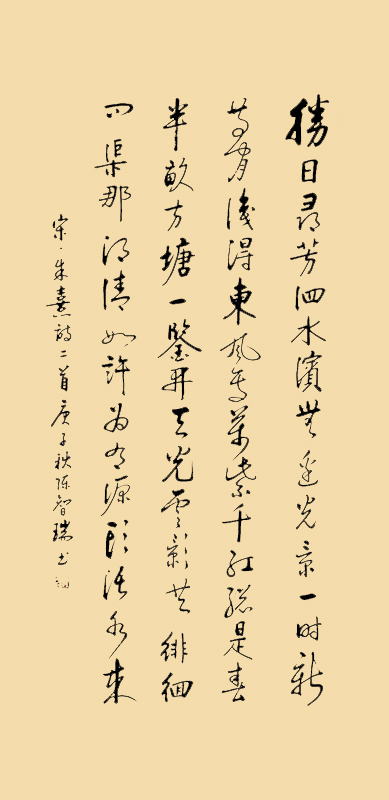 勝日尋芳泗水濱無邊光景一時新
等閒識得東風面萬紫千紅總是春
半畝方塘一鑒開天光雲影共徘徊
問渠那得清如許為有源頭活水來
宋·朱熹詩二首庚子秋陳智瑞书